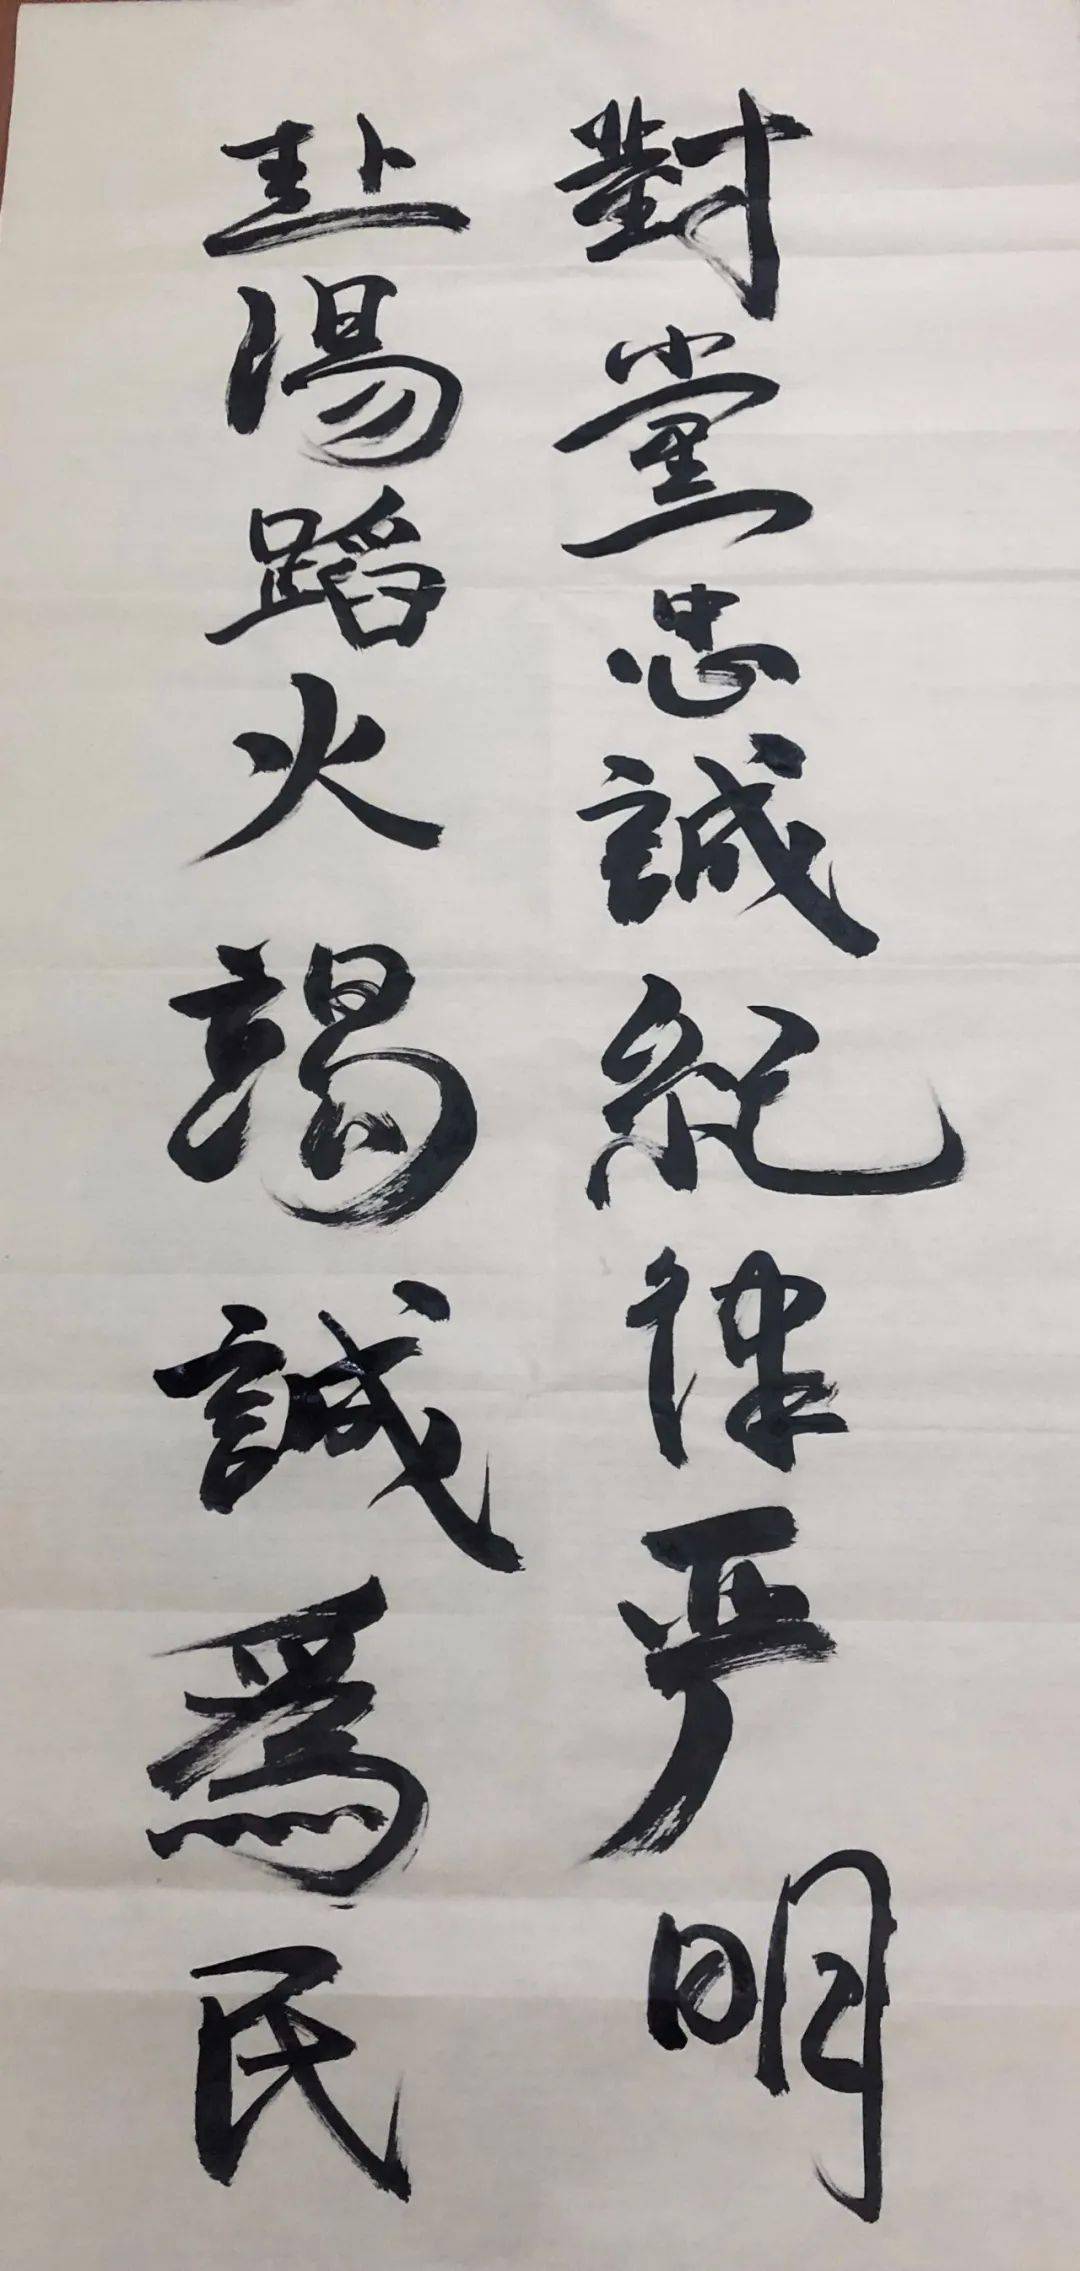 對黨忠誠紀律严明
赴湯蹈火竭誠爲民